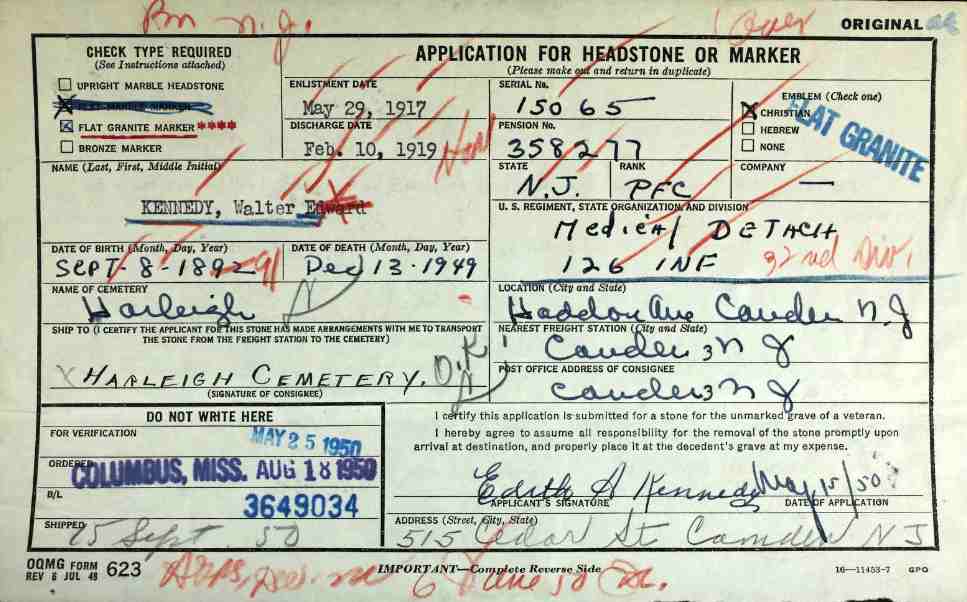 ORIGINAL
Over
N. J.
CHECK TYPE REQUIRED
(See Instructions attached)
UPRIGHT MARBLE HEADSTONE
FLAT MARBLE MARKER
FLAT GRANITE MARKER ****
BRONZE MARKER
ENLISTMENT DATE
May 29, 1917
DISCHARGE DATE
Feb. 10, 1919
APPLICATION FOR HEADSTONE OR MARKER
(Please make out and return in duplicate)
SERIAL No.
15065
PENSION No.
358277
EMBLEM (Check one)
CHRISTIAN
HEBREW
NONE
FLAT GRANITE
NAME (Last, First, Middle Initial)
KENNEDY, Walter Edward
STATE
N.J.
RANK
PFC
COMPANY
—
U. S. REGIMENT, STATE ORGANIZATION, AND DIVISION
Medical DETACH.
126 INF
32nd Div.
DATE OF BIRTH (Month, Day, Year)
SEPT-8-1892
91
DATE OF DEATH (Month, Day, Year)
Dec 13-1949
NAME OF CEMETERY
Harleigh
LOCATION (City and State)
Haddon Ave Camden N. J
SHIP TO (I CERTIFY THE APPLICANT FOR THIS STONE HAS MADE ARRANGEMENTS WITH ME TO TRANSPORT
THE STONE FROM THE FREIGHT STATION TO THE CEMETERY)
HARLEIGH CEMETERY.
O.K.
(SIGNATURE OF CONSIGNEE)
NEAREST FREIGHT STATION (City and State)
Camden 3 N J
POST OFFICE ADDRESS OF CONSIGNEE
Camden 3 N J
DO NOT WRITE HERE
FOR VERIFICATION
MAY 25 1950
ORDERED
COLUMBUS, MISS. AUG 18 1950
B/L
3649034
SHIPPED
15 Sept 50
I certify this application is submitted for a stone for the unmarked grave of a veteran.
I hereby agree to assume all responsibility for the removal of the stone promptly upon
arrival at destination, and properly place it at the decedent's grave at my expense.
Edith A Kennedy May 15/50
APPLICANT'S SIGNATURE
DATE OF APPLICATION
ADDRESS (Street, City, State)
515 Cedar St Camden N J
OQMG FORM
REV 6 JUL 48
623
IMPORTANT—Complete Reverse Side
6 June 50
16—11453-7 GPO